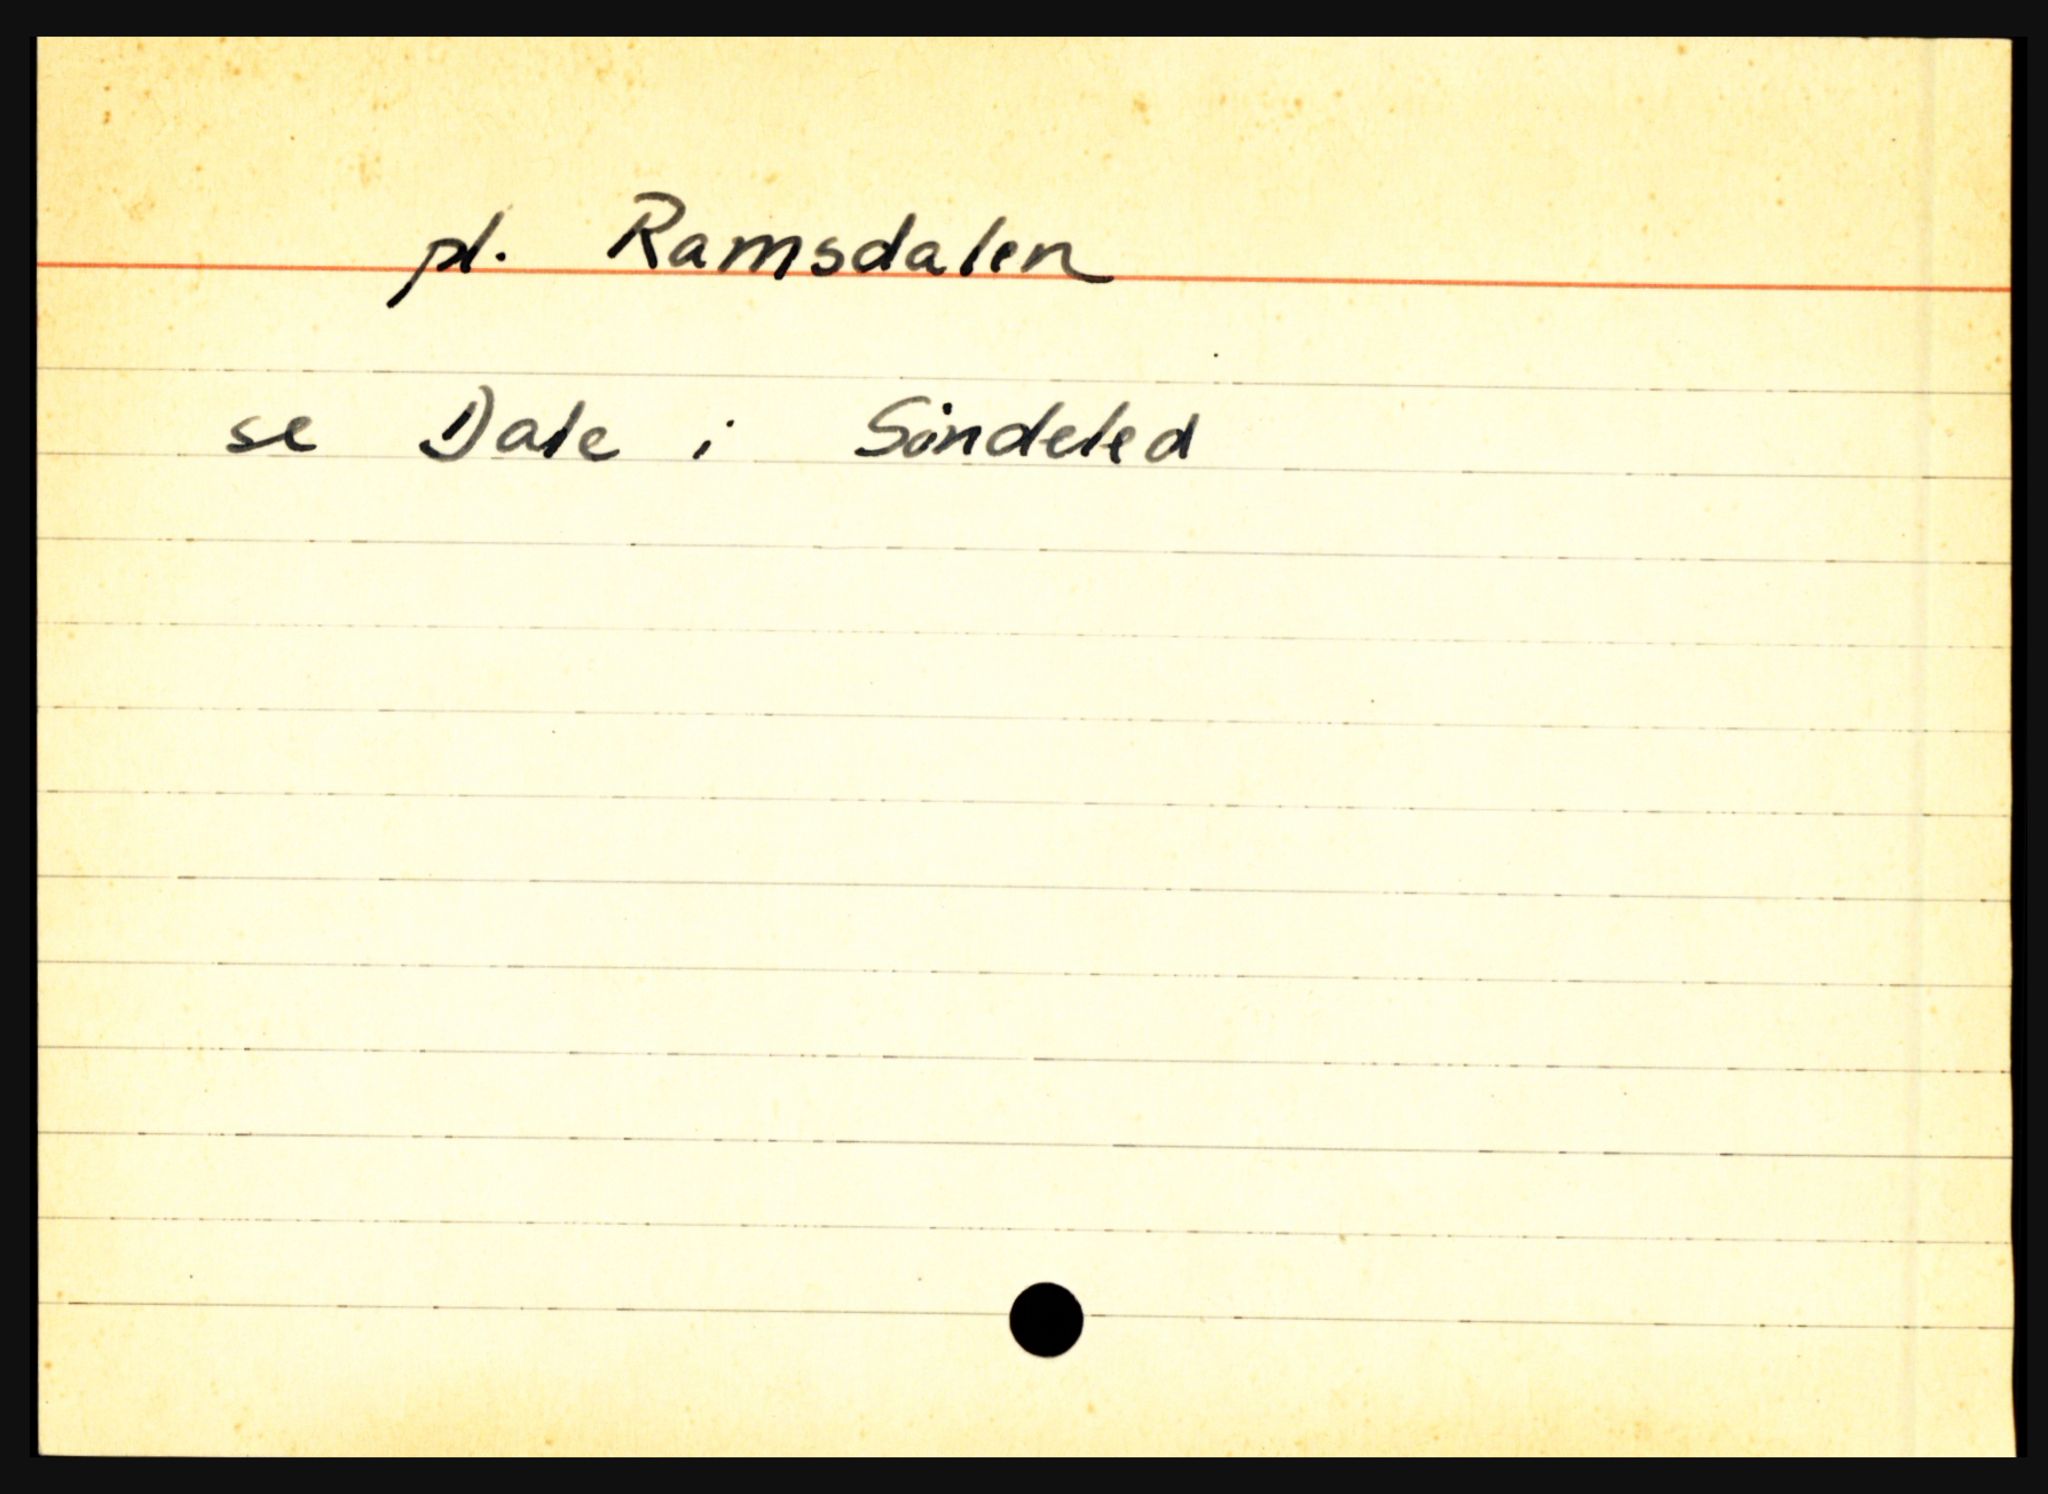 pl. Ramsdalen
se Dale i Søndeled